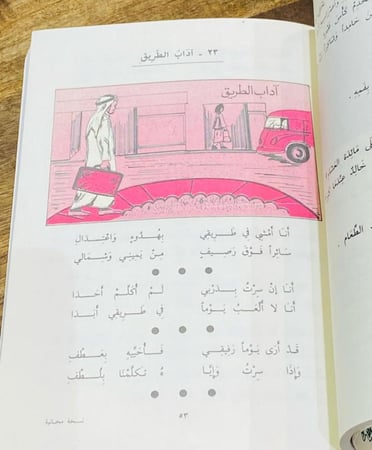 ٢٣ - آدَابُ الطَّرِيقِ
آداب الطريق
أنا أَمْشِي فِي طَرِيقي بِهُدُوءٍ وَاعْتِدَالِ
سَائِراً فَوْقَ رَصِيفٍ مِنْ يَمِينِي وَشِمَالِي
أنا إنْ سِرْتُ بِدَرْبِي لَمْ أُكَلِّمْ أَحَدا
أنا لا أَلْعَبُ يَوْماً فِي طَرِيقِي أَبَدَا
قَدْ أَرَى يَوْماً رَفِيقِي فَأُحَيِّيهِ بِعَطْفِ
وَإِذَا سِرْتُ وَإِيَّا هُ تَكَلَّمْنَا بِلُطْفِ
٥٣
نسخة مجانية
الطَّعَام .